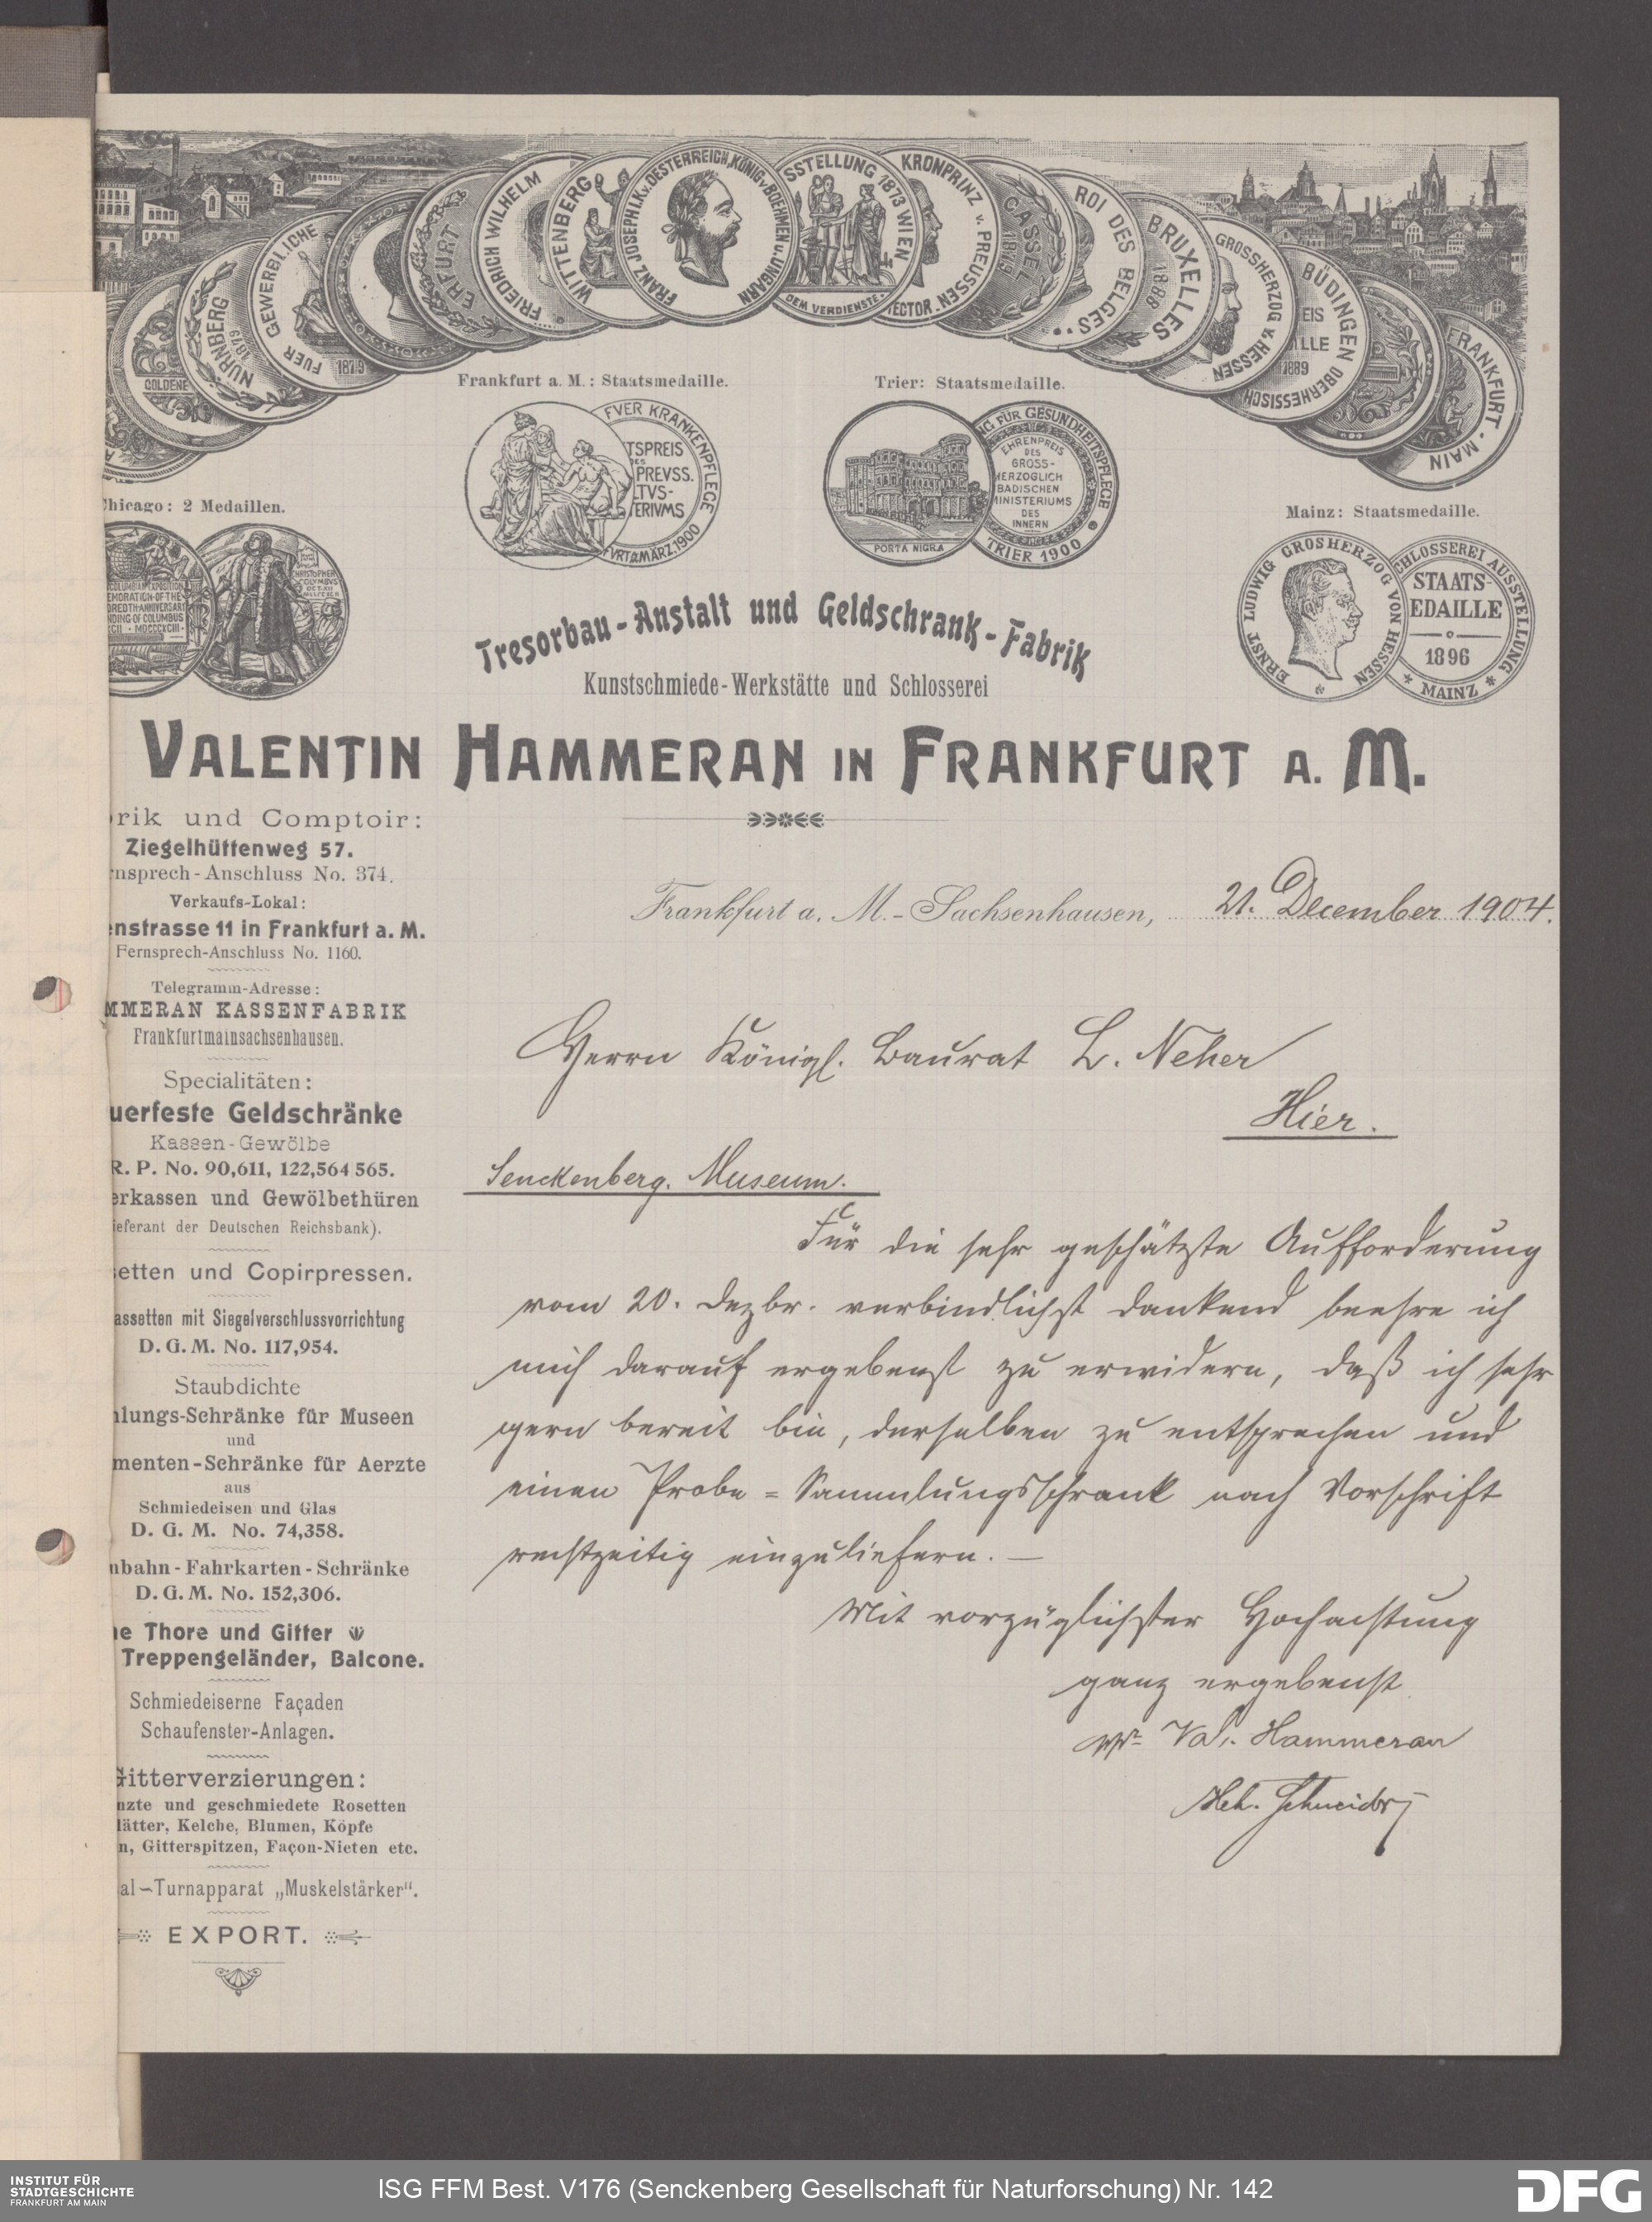 GOLDENE
NÜRNBERG
1879
FUER GEWERBLICHE
1879
ERFURT
FRIEDRICH WILHELM
WITTENBERG
FRANZ JOSEPH I. K. v. OESTERREICH, KÖNIG v. BOEHMEN u. UNGARN
SSTELLUNG 1873 WIEN
DEM VERDIENSTE.
KRONPRINZ v. PREUSSEN
ECTOR.
CASSEL
ROI DES BELGES
BRUXELLES
1888
GROSSHERZOG v. HESSEN
BÜDINGEN OBERHESSISCH
EIS
LLE
1889
FRANKFURT - MAIN
Frankfurt a. M.: Staatsmedaille.
Trier: Staatsmedaille.
FVER KRANKENPFLEGE
TSPREIS
DES
PREVSS.
TVS-
ERIVMS
FVRT a/M MÄRZ.1900
PORTA NIGRA
NG FÜR GESUNDHEITSPFLEGE
EHRENPREIS
DES
GROSS-
HERZOGLICH
BADISCHEN
MINISTERIUMS
DES
INNERN
TRIER 1900
Chicago: 2 Medaillen.
Mainz: Staatsmedaille.
ERNST LUDWIG GROSHERZOG VON HESSEN
CHLOSSEREI AUSSTELLUNG
STAATS-
EDAILLE
1896
* MAINZ *
Tresorbau-Anstalt und Geldschrank-Fabrik
Kunstschmiede-Werkstätte und Schlosserei
VALENTIN HAMMERAN IN FRANKFURT A. M.
rik und Comptoir:
Ziegelhüttenweg 57.
rnsprech-Anschluss No. 374.
Verkaufs-Lokal:
enstrasse 11 in Frankfurt a. M.
Fernsprech-Anschluss No. 1160.
Telegramm-Adresse:
MMERAN KASSENFABRIK
Frankfurtmainsachsenhausen.
Specialitäten:
uerfeste Geldschränke
Kassen-Gewölbe
R. P. No. 90,611, 122,564 565.
erkassen und Gewölbethüren
ieferant der Deutschen Reichsbank).
setten und Copirpressen.
assetten mit Siegelverschlussvorrichtung
D. G. M. No. 117,954.
Staubdichte
lungs-Schränke für Museen
und
menten-Schränke für Aerzte
aus
Schmiedeisen und Glas
D. G. M. No. 74,358.
nbahn-Fahrkarten-Schränke
D. G. M. No. 152,306.
ne Thore und Gitter
Treppengeländer, Balcone.
Schmiedeiserne Façaden
Schaufenster-Anlagen.
Gitterverzierungen:
nzte und geschmiedete Rosetten
lätter, Kelche, Blumen, Köpfe
n, Gitterspitzen, Façon-Nieten etc.
al-Turnapparat „Muskelstärker“.
EXPORT.
Frankfurt a. M.-Sachsenhausen, 21. December 1904.
Herrn Königl. Baurat L. Neher
Hier.
Senckenberg. Museum.
Für die sehr geschätzte Aufforderung
vom 20. Dezbr. verbindlichst dankend beehre ich
mich darauf ergebenst zu erwidern, daß ich sehr
gern bereit bin, derselben zu entsprechen und
einen Probe=Sammlungsschrank nach Vorschrift
rechtzeitig einzuliefern. —
Mit vorzüglichster Hochachtung
ganz ergebenst
ppr Val. Hammeran
Hch. Schneider
INSTITUT FÜR
STADTGESCHICHTE
FRANKFURT AM MAIN
ISG FFM Best. V176 (Senckenberg Gesellschaft für Naturforschung) Nr. 142
DFG